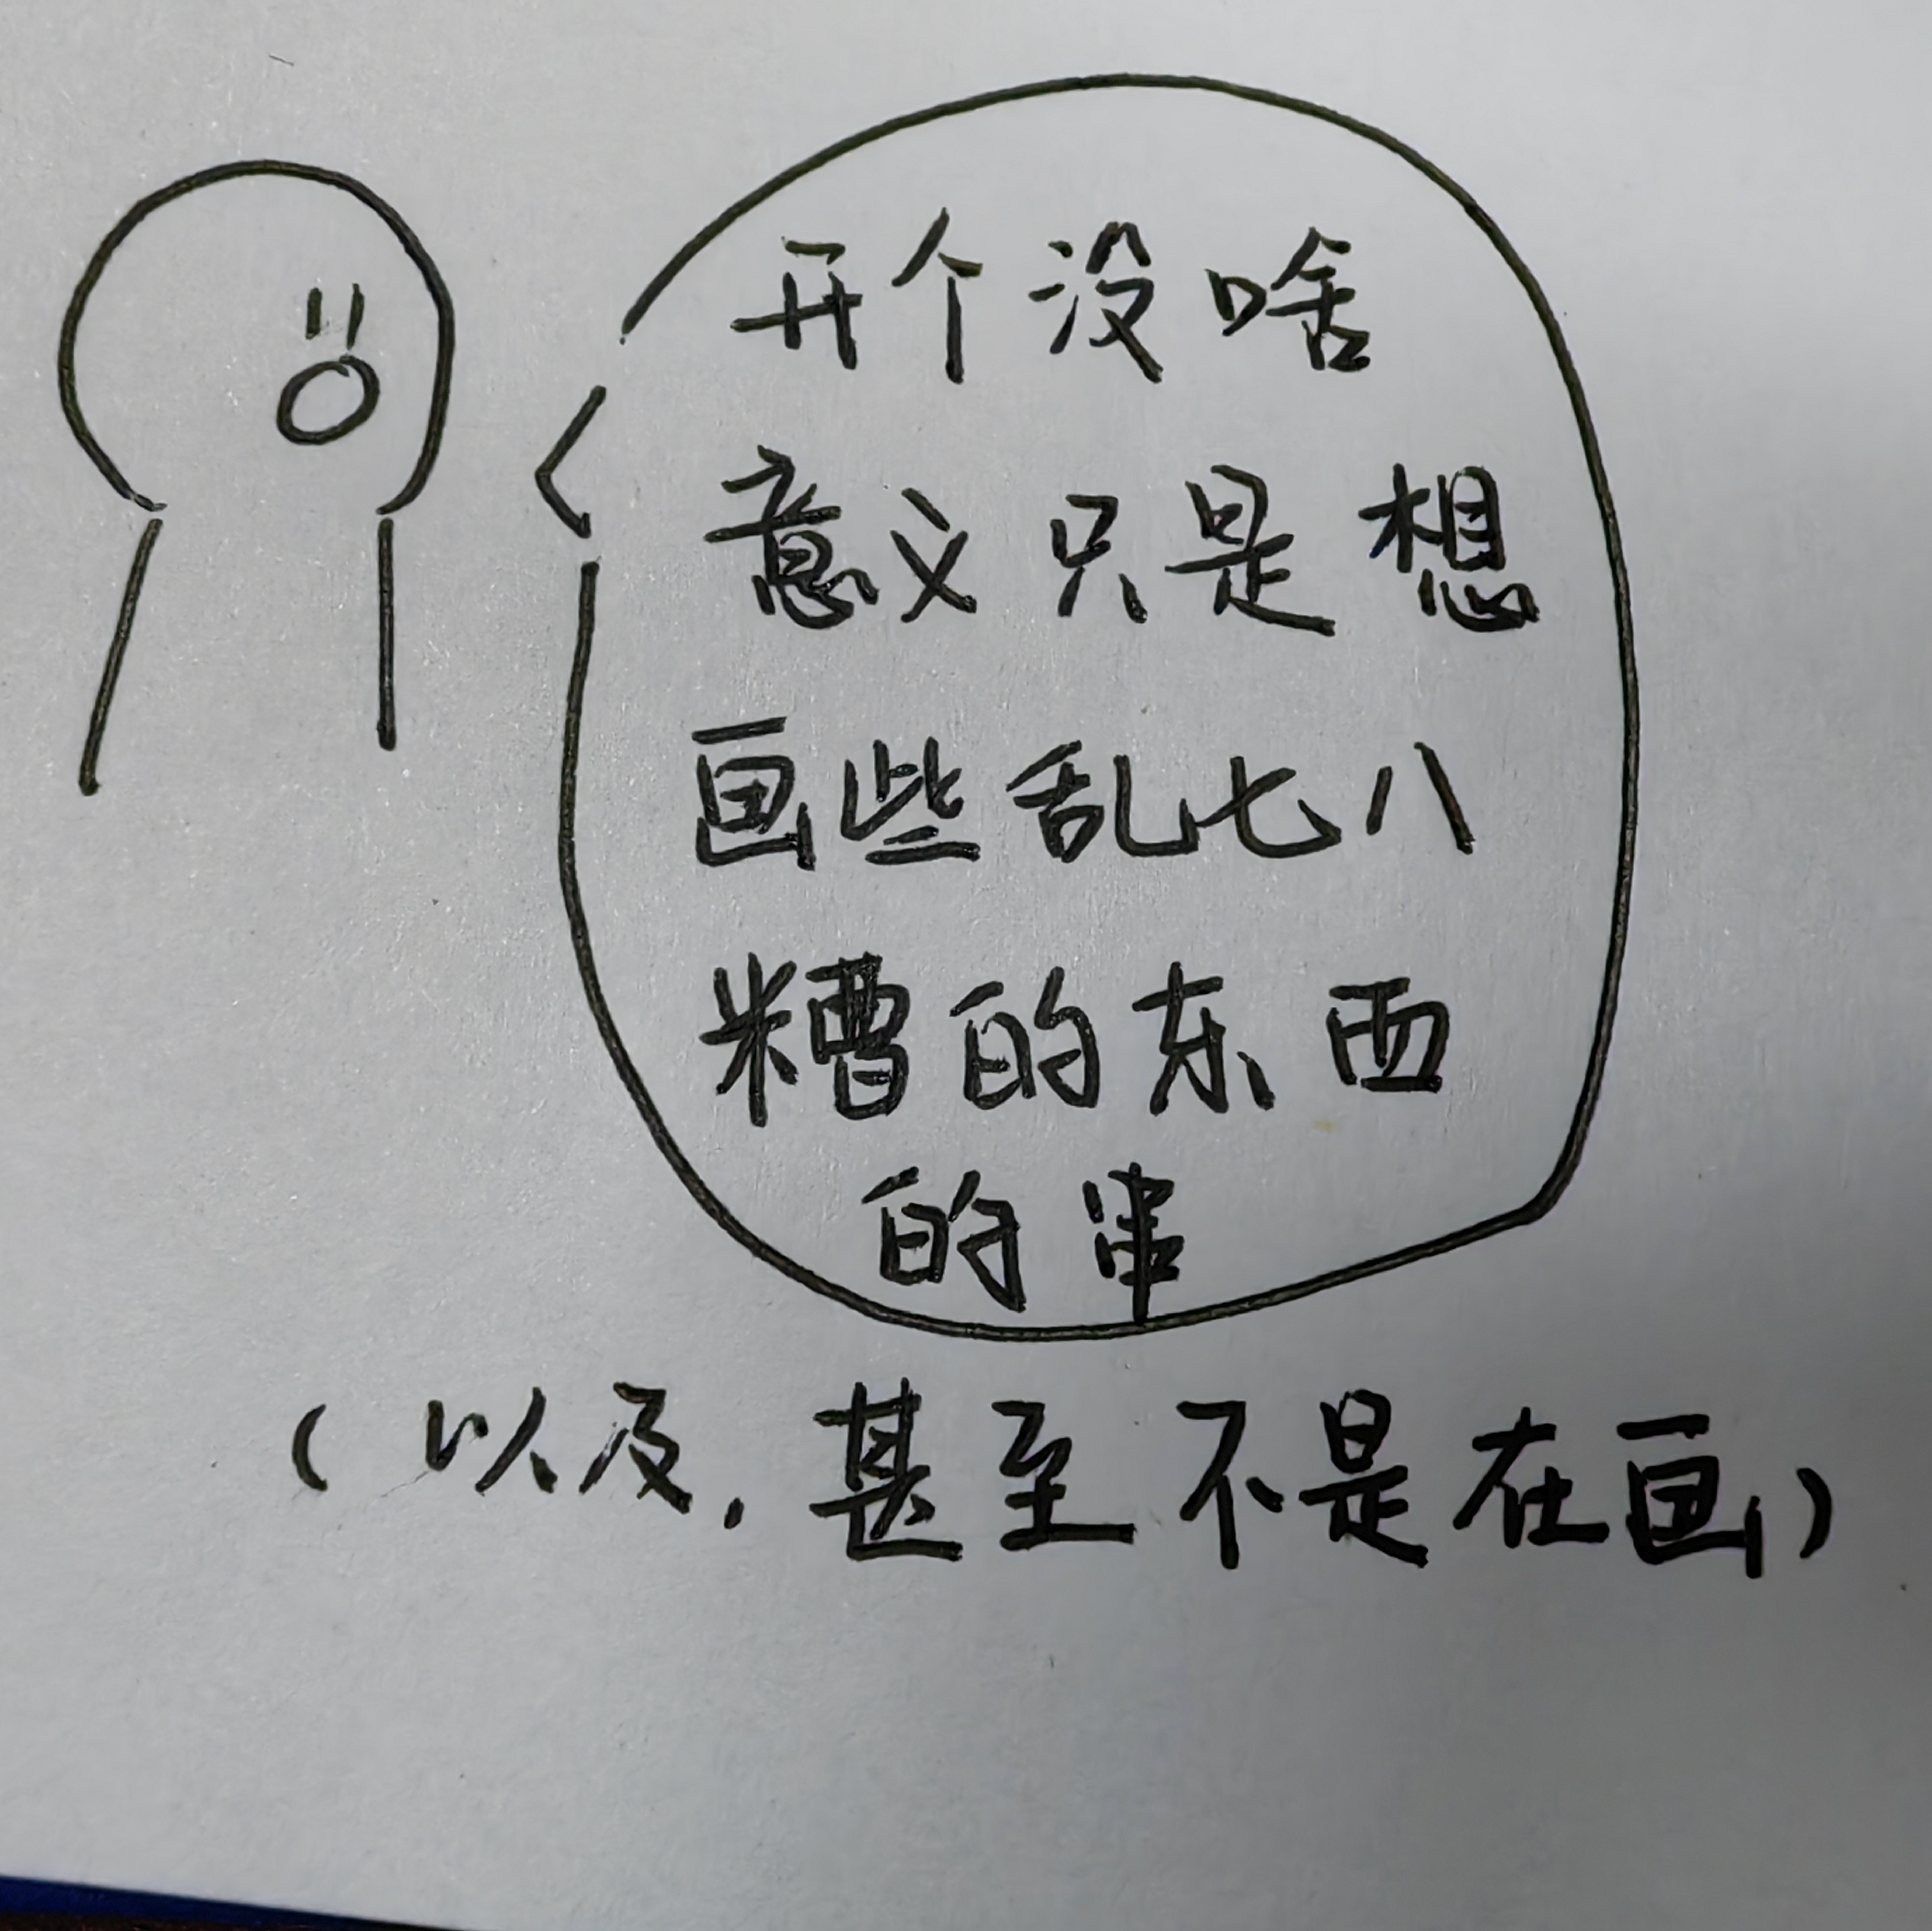 开个没啥
意义只是想
画些乱七八
糟的东西
的串
（以及，甚至不是在画）